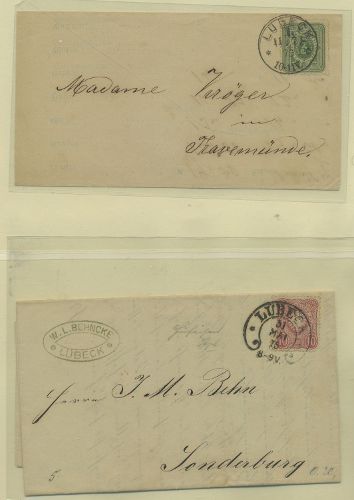 LÜBECK
11
10-11V
Madame Kröger
in
Travemünde.
W. L. BEHNCKE
LÜBECK
LÜBECK
31
MAI
8-9V.
Herrn J. M. Behn
Sonderburg
5